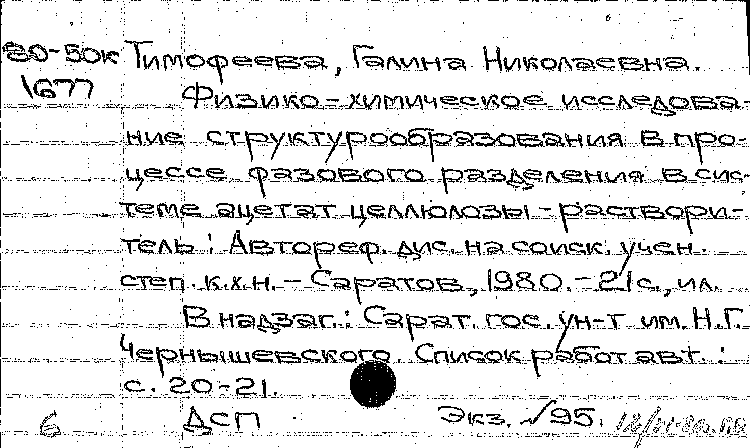 80-50к Тимофеева, Галина Николаевна.
1677 Физико-химическое исследова-
ние структурообразования в про-
цессе фазового разделения в сис-
теме ацетат целлюлозы-раствори-
тель: Автореф. дис. на соиск. учен.
степ. к.х.н. – Саратов, 1980. – 21 с., ил.
В надзаг.: Сарат. гос. ун-т им. Н.Г.
Чернышевского. Список работ авт.:
с. 20-21.
6 ДСП Экз. №95.